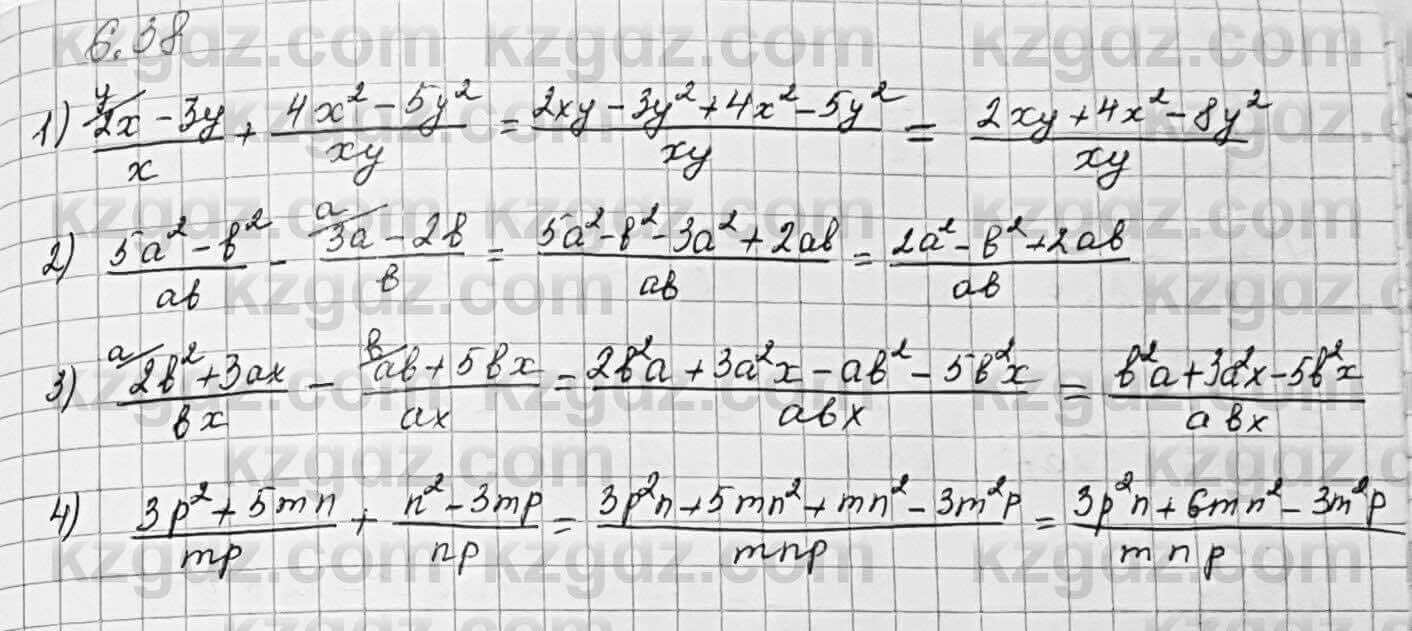 6.38
1) ʸ/(2x - 3y)/x + (4x² - 5y²)/xy = (2xy - 3y² + 4x² - 5y²)/xy = (2xy + 4x² - 8y²)/xy
2) (5a² - b²)/ab - ᵃ/(3a - 2b)/b = (5a² - b² - 3a² + 2ab)/ab = (2a² - b² + 2ab)/ab
3) ᵃ/(2b² + 3ax)/bx - ᵇ/(ab + 5bx)/ax = (2b²a + 3a²x - ab² - 5b²x)/abx = (b²a + 3a²x - 5b²x)/abx
4) (3p² + 5mn)/mp + (n² - 3mp)/np = (3p²n + 5mn² + mn² - 3m²p)/mnp = (3p²n + 6mn² - 3m²p)/mnp
kzgdz.com kzgdz.com kzgdz.com
kzgdz.com kzgdz.com
kzgdz.com kzgdz.com kzgdz.com
kzgdz.com kzgdz.com
kzgdz.com kzgdz.com kzgdz.com
kzgdz.com kzgdz.com
kzgdz.com kzgdz.com kzgdz.com